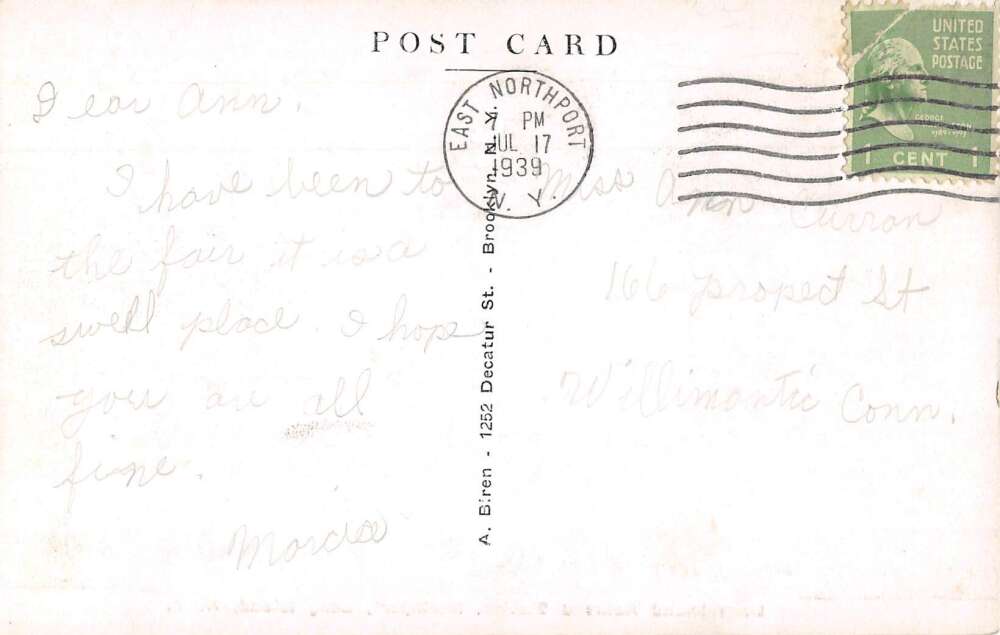 POST CARD
EAST NORTHPORT
7 PM
JUL 17
1939
N. Y.
UNITED
STATES
POSTAGE
GEORGE
WASHINGTON
1789-1797
1 CENT 1
Dear Ann.
I have been to
the fair it is a
swell place. I hope
you are all
fine.
A. Biren - 1252 Decatur St. - Brooklyn, N. Y.
Miss Ann Curran
166 propect St
Willimantic Conn.